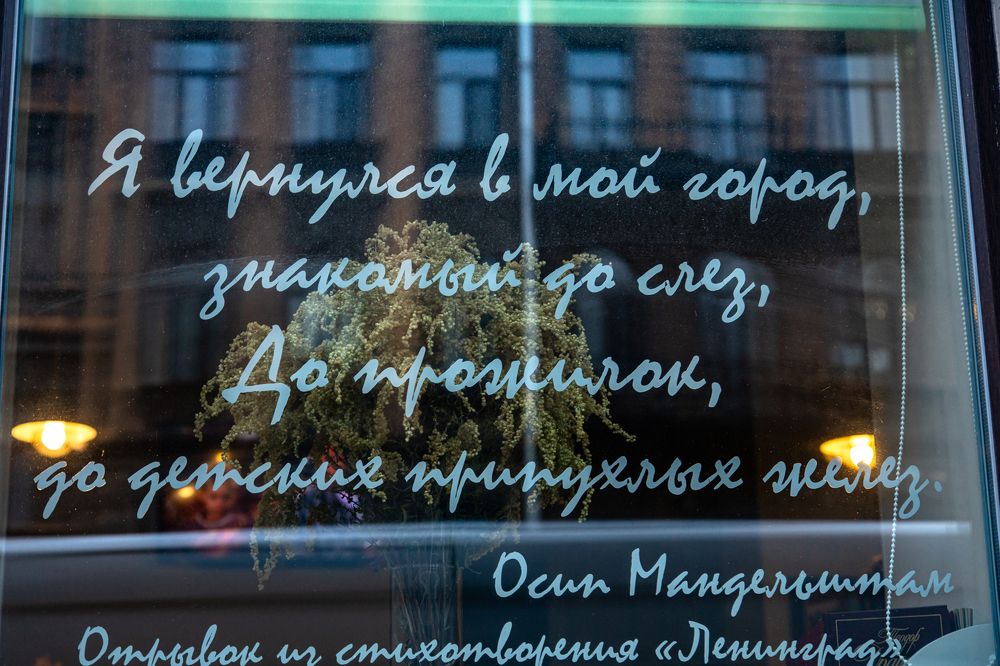 Я вернулся в мой город,
знакомый до слез,
До прожилок,
до детских припухлых желез.
Осип Мандельштам
Отрывок из стихотворения «Ленинград»
Теодор